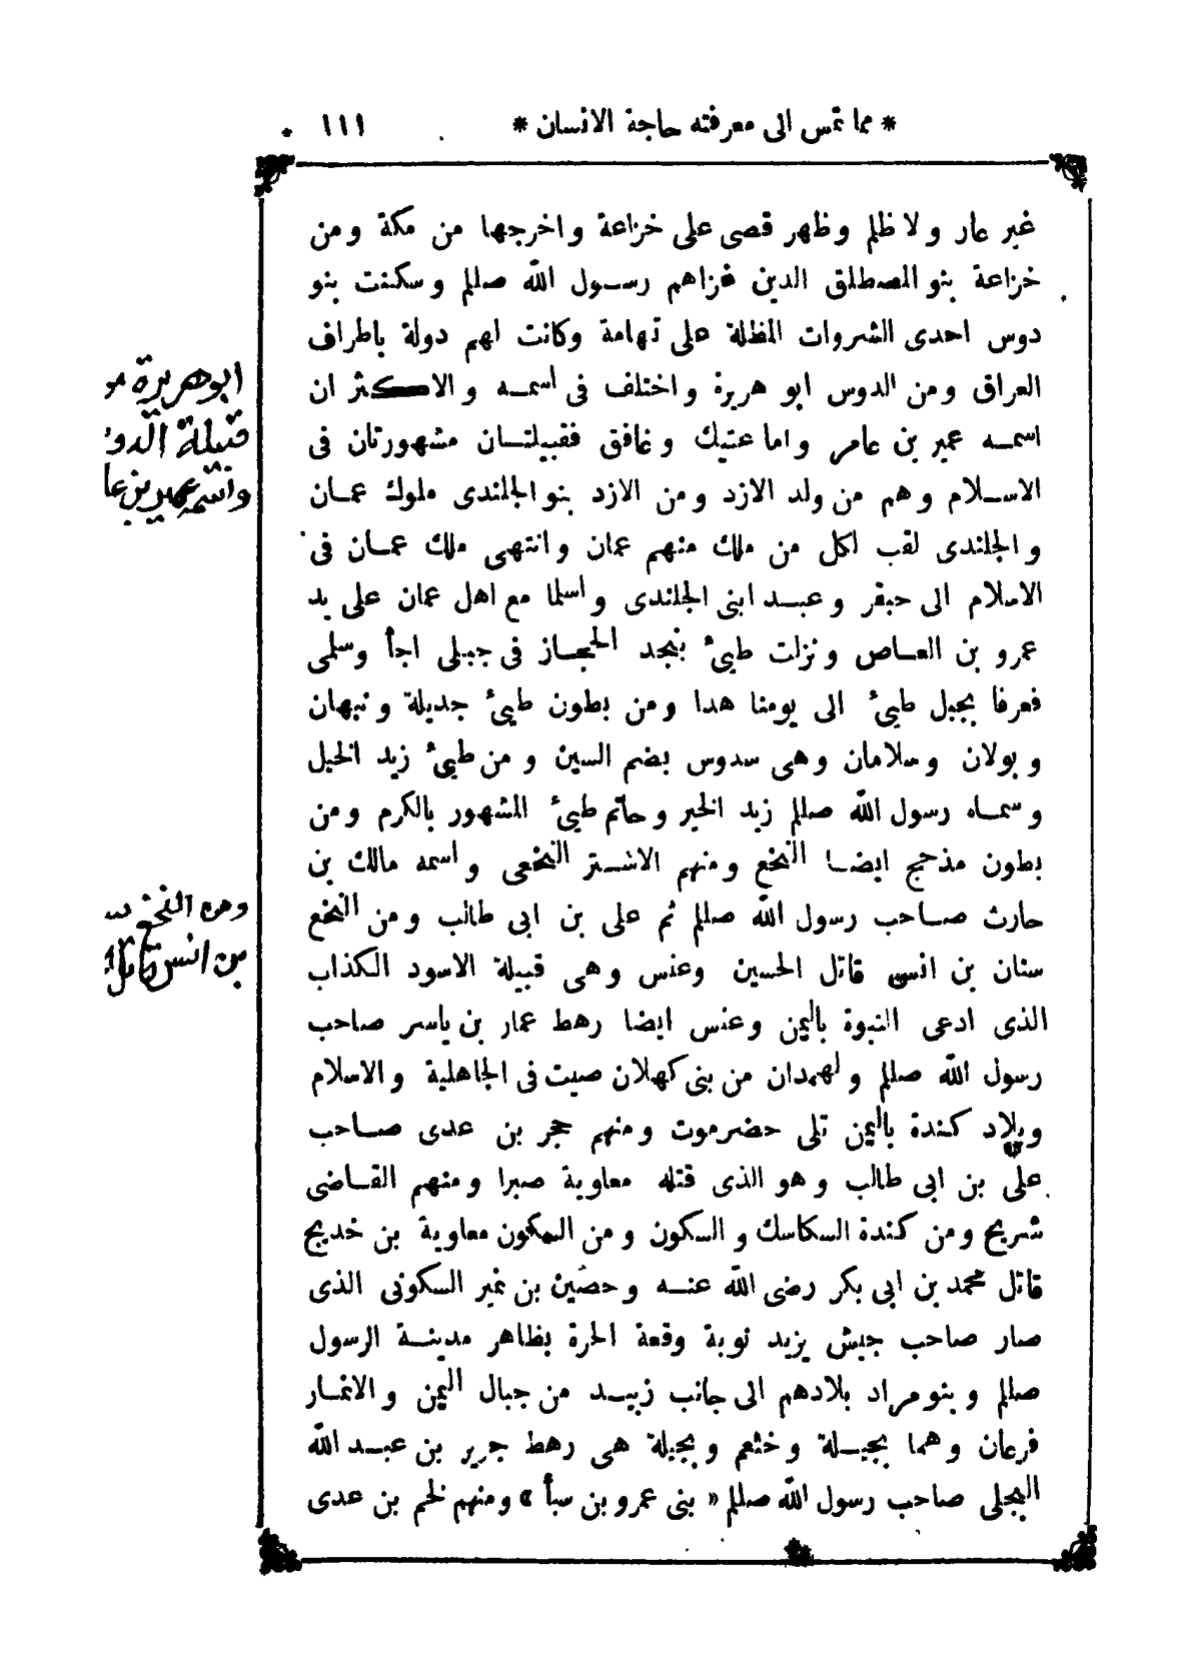 * مما تمس الى معرفته حاجة الانسان * ١١١
غير عار ولا ظلم وظهر قصى على خزاعة واخرجها من مكة ومن
خزاعة بنو المصطلق الدين غزاهم رسول الله صللم وسكنت بنو
دوس احدى الشروات المظلة على تهامة وكانت لهم دولة باطراف
العراق ومن الدوس ابو هريرة واختلف فى اسمه والاكثر ان
اسمه عمير بن عامر واما عتيك وغافق فقبيلتان مشهورتان فى
الاسلام وهم من ولد الازد ومن الازد بنو الجلندى ملوك عمان
والجلندى لقب لكل من ملك منهم عمان وانتهى ملك عمان فى
الاسلام الى حبقر وعبد ابنى الجلندى واسلما مع اهل عمان على يد
عمرو بن العاص ونزلت طيئ بنجد الحجاز فى جبلى اجأ وسلمى
فعرفا بجبل طيئ الى يومنا هدا ومن بطون طيئ جديلة ونبهان
وبولان وسلامان وهى سدوس بضم السين ومن طيئ زيد الخيل
وسماه رسول الله صللم زيد الخير وحاتم طيئ المشهور بالكرم ومن
بطون مذحج ايضا النخع ومنهم الاشتر النخعى واسمه مالك بن
حارث صاحب رسول الله صللم ثم على بن ابى طالب ومن النخع
سنان بن انس قاتل الحسين وعنس وهى قبيلة الاسود الكذاب
الذى ادعى النبوة باليمن وعنس ايضا رهط عمار بن ياسر صاحب
رسول الله صللم ولهمدان من بنى كهلان صيت فى الجاهلية والاسلام
وبلاد كندة باليمن تلى حضرموت ومنهم حجر بن عدى صاحب
على بن ابى طالب وهو الذى قتله معاوية صبرا ومنهم القاضى
شريح ومن كندة السكاسك والسكون ومن السكون معاوية بن خديج
قاتل محمد بن ابى بكر رضى الله عنه وحصين بن نمير السكونى الذى
صار صاحب جيش يزيد نوبة وقعة الحرة بظاهر مدينة الرسول
صللم وبنو مراد بلادهم الى جانب زبيد من جبال اليمن والانمار
فرعان وهما بجيلة وخثعم وبجيلة هى رهط جرير بن عبد الله
البجلى صاحب رسول الله صللم « بنى عمرو بن سبأ » ومنهم لخم بن عدى
ابو هريرة
قبيلة الدو
واسمه عمير بن عا
ومن النخع
بن انس قاتل